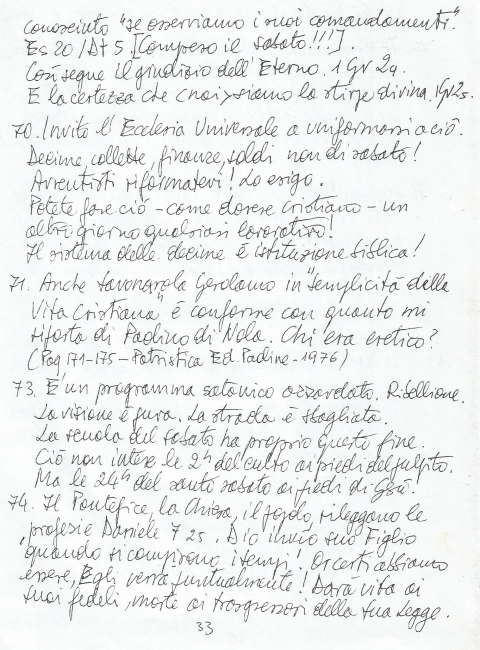 conosciuto "se osserviamo i suoi comandamenti".
Es 20/Dt 5 [Compreso il sabato!!!].
Così segue il giudizio dell'Eterno. 1 Gv 2 4.
E la certezza che (noi) siamo la stirpe divina. 1Gv 2 5.
70. Invito l'Ecclesia Universale a uniformarsi a ciò.
Decime, collette, finanze, soldi non di sabato!
Avventisti riformatevi! Lo esigo.
Potete fare ciò - come dovere cristiano - un
altro giorno qualsiasi lavorativo!
Il sistema delle decime è istituzione biblica!
71. Anche Savonarola Gerolamo in "Semplicità della
Vita Cristiana" è conforme con quanto mi
riporta di Paolino di Nola. Chi era eretico?
(Pag 171-175 - Patristica Ed. Paoline - 1976)
73. E' un programma satanico azzardato. Ribellione.
La visione è pura. La strada è sbagliata.
La scuola del sabato ha proprio questo fine.
Ciò non intese le 2h del culto ai piedi del pulpito.
Ma le 24h del santo sabato ai piedi di Gesù.
74. Il Pontefice, la Chiesa, il popolo, rileggono le
profezie Daniele 7 25. Dio inviò suo Figlio
quando si compirono i tempi! Or certi abbiamo
essere, Egli verrà puntualmente! Darà vita ai
suoi fedeli, morte ai trasgressori della sua Legge.
33